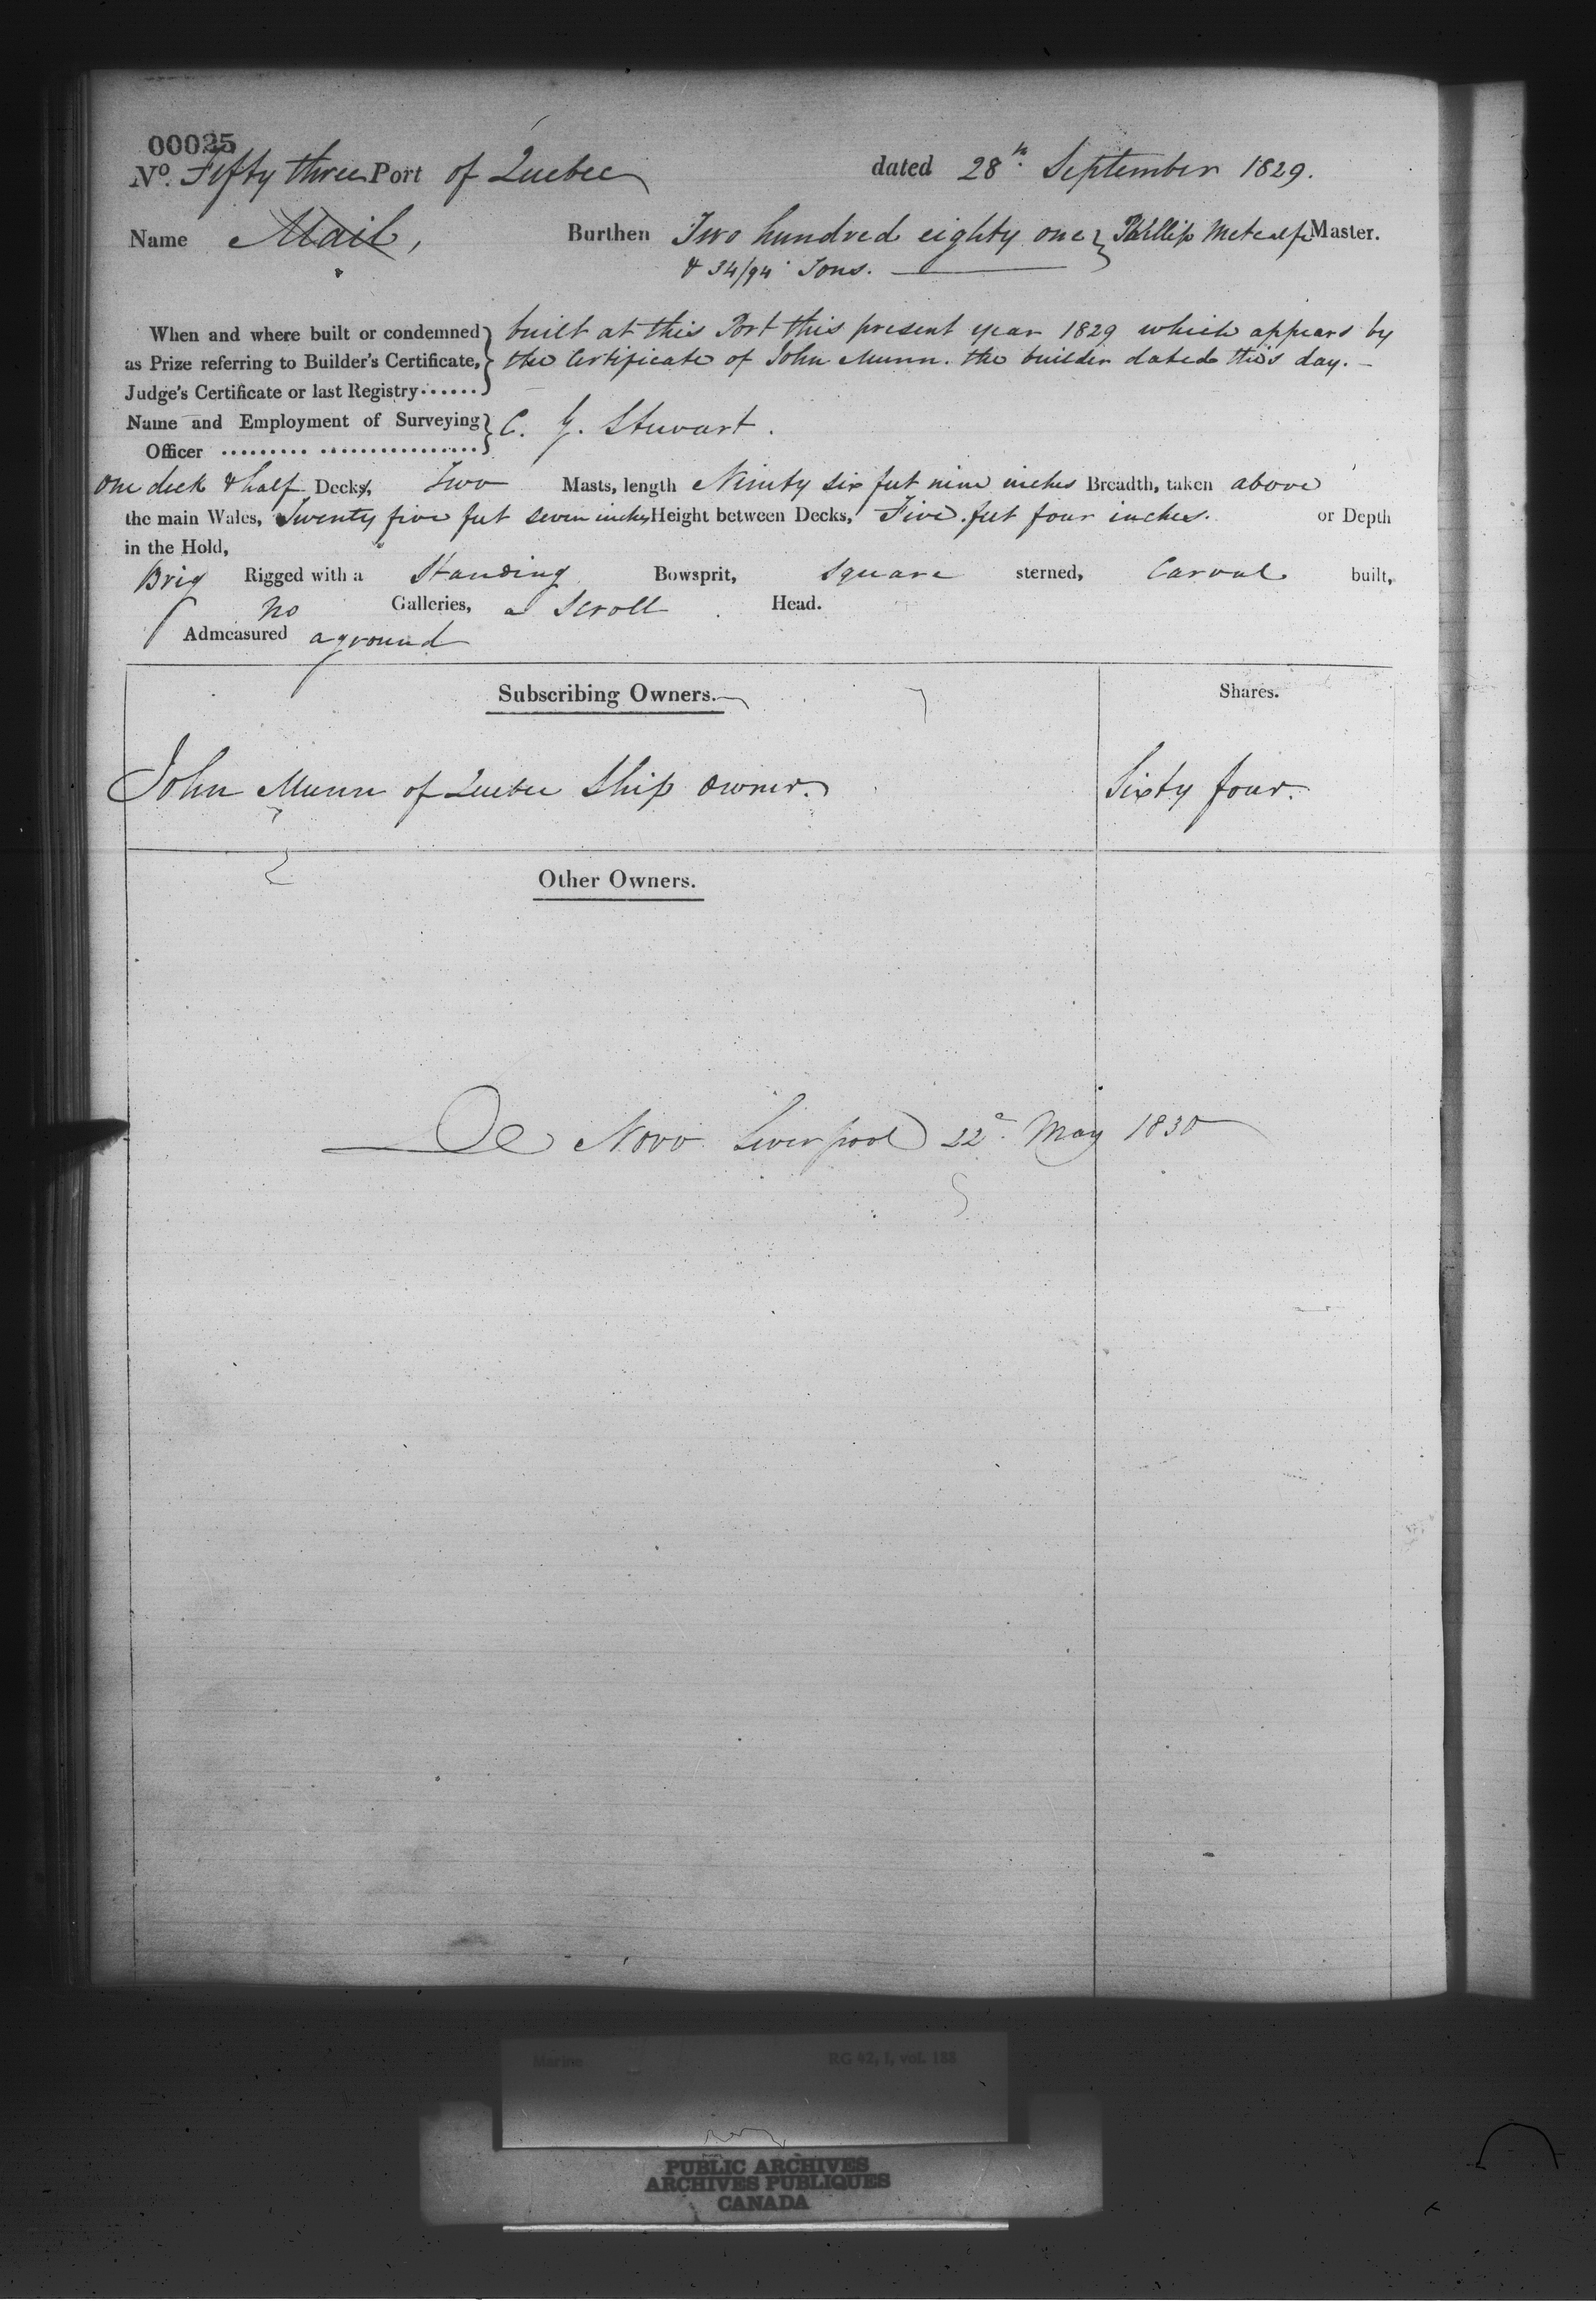 00025
No. Fifty three Port of Quebec dated 28th September 1829.
Name Mail, Burthen Two hundred eighty one } Phillip Metcalfe Master.
& 34/94 Tons.
When and where built or condemned } built at this Port this present year 1829 which appears by
as Prize referring to Builder's Certificate, } the Certificate of John Munn. the builder dated this day. –
Judge's Certificate or last Registry....... }
Name and Employment of Surveying } C. G. Stewart.
Officer ......... ................ }
One deck & half Decks, Two Masts, length Ninety six feet nine inches Breadth, taken above
the main Wales, Twenty five feet seven inches Height between Decks, Five feet four inches. or Depth
in the Hold,
Brig Rigged with a Standing Bowsprit, Square sterned, Carvel built,
No Galleries, a Scroll Head.
Admeasured aground
Subscribing Owners. Shares.
John Munn of Quebec Ship owner. Sixty four.
Other Owners.
De Novo Liverpool 22d May 1830
Marine RG 42, I, vol. 188
PUBLIC ARCHIVES
ARCHIVES PUBLIQUES
CANADA